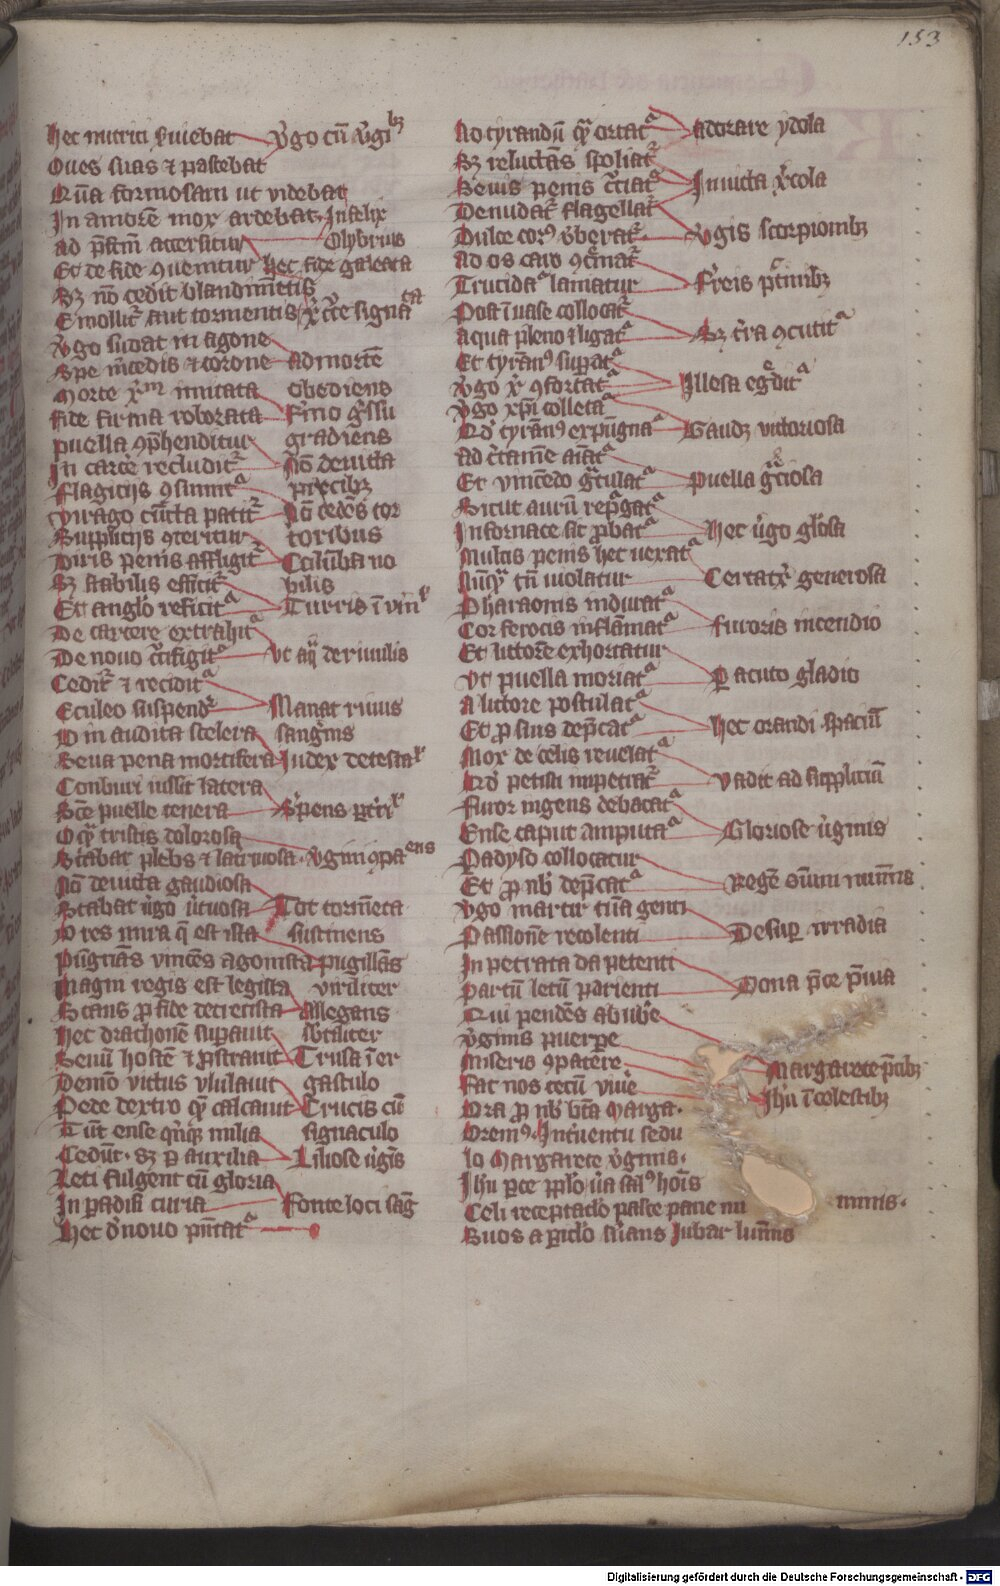 153
hec nutrici seruiebat v̓go cu̅ v̓gi bꝫ
Oues suas ⁊ pastebat
Qu̅a formosam ut videbat
In amore̅ mox ardebat Infelix
ad p̅sm̅ accersitur Olybrius
Et de fide ꝯuenitur hec fide galeata
Sꝫ no̅ cedit blandime̅tis
Emollit᷑ aut tormentis
v̓go sudat in agone
Spe m̓cedis ⁊ corone ad morte̅
Morte xp̅m imitata obediens
fide firma roborata Firmo g̓ssu
puella ꝯp̅henditur gradiens
In carce̓ recludit᷑ No̅ deuicta
Flagicijs ꝯsumit᷑ precibꝫ
tyrago cu̅cta patit᷑ Nō cede̅s tor
Supplicijs ꝯteritur toribus
Diris penis affligit᷑ Colu̅ba no
Sꝫ stabilis efficit᷑ bilis
Et anglo̓ reficit᷑ Turris i̅ vin
De carcere extrahit᷑
De nouo c̓ifigit᷑ Vt aq̅ de riuulis
Cedit᷑ ⁊ recidit᷑
Eculeo suspend᷑ Manat riuus
O in audita scelera sang̓nis
Seua pena mortifera Iudex detesta
Conburi iussit latera
Sc̅e puelle tenera
O qua̅ tristis dolorosa
Stabat plebs ⁊ lacri̅osa v̓gini ꝯpa ens
No̅ deuicta gaudiosa
Stabat v̓go v̓tuosa Tot torme̅ta
O res mira q̅ est ista sustinens
Pu̅gna̅s vince̅s agonista pugilla̅s
Magni regis est legista viriliter
Stans p̱ fide decretista Allegans
hec drachone̅ sup̱auit sb̓taliter
Seuu̅ hoste̅ ⁊ p̱strauit Trusa i̅ er
Demo̅ victus vlulauit gastulo
Pede dextro que̅ calcauit Crucis cu̅
Tu̅t ense qui̅qꝫ milia signaculo
Cedu̅t sꝫ p̱ auxilia Liliose v̓gi̅s
Leti fulgent cu̅ gloria
In p̱adisi curia Fonte loci sac̅
Hec de nouo pu̅ctat᷑
Ad tyrandu̅ que̅ ortat᷑ Adorare ydola
Sꝫ relucta̅s spoliat᷑
Seuis penis c̓ciat᷑ Inuicta xp̅cola
Denudat᷑ flagellat᷑
Dulce corꝰ v̓berat᷑ v̓gis scorpionibꝫ
Ad os caro ꝯc̓mat᷑
Trucidat᷑ laniatur
Post i̅ vase collocat᷑
Aqua pleno ⁊ ligat᷑ Sꝫ t̓ra ꝯcutit᷑
Et tyra̅nꝰ sup̱at᷑
v̓go xp̅i ꝯfortat᷑ Illesa eg̓dit᷑
v̓go xp̅i colletat᷑
Qd̓ tyra̅nꝰ expu̅gnat᷑ Gaudꝫ victoriosa
Ad c̓tame̅ aiat᷑
Et vince̅do g̓tulat᷑ puella g̓ciosa
Sicut auru̅ rep̱gat᷑
In fornace sic p̱bat᷑ hec v̓go gl̓osa
Multis penis hec uexat᷑
Nu̅qua̅ tn̅ uiolatur Certat᷑ generosa
Pharaonis indurat᷑
Cor ferocis infla̅mat᷑ furoris incendio
Et lictore̅ exhortatur
Vt puella moriat᷑ P̱ acuto gladio
A lictore postulat᷑
Et p̱ suis dep̅cat᷑ hec orandi spaciu̅
Mox de celis reuelat᷑
Qd̓ petisti impetrat᷑ Vadit ad suppliciu̅
Furor ingens debacat᷑
Ense caput amputat᷑ Gloriose v̓ginis
Padyso collocatur
Et p̱ nb̓ dep̅cat᷑ Rege̅ su̅mi numi̅s
v̓go martir tua̅ genti
Passione̅ recolenti Desup̱ irradia
Inpetrata da petenti
Partu̅ letu̅ parienti Dona p̅ce p̅uia
Qui pende̅s ab ube̓
v̓ginis puerpe
Miseris ꝯpatere Margarete p̅cibꝫ
Fac nos tecu̅ viue̓ Jhu̅ i̅ celestibꝫ
Ora p̱ nb̓ bt̅a Marga.
Oremꝰ Int̓uentu sedu
lo Margarete v̓ginis.
Jhu p̱ce pp̱lo tua salꝰ ho̅is
Celi receptaclo paste pane nu minis.
Suos a p̱iclo su̅ans Jubar lumi̅s
Digitalisierung gefördert durch die Deutsche Forschungsgemeinschaft - DFG